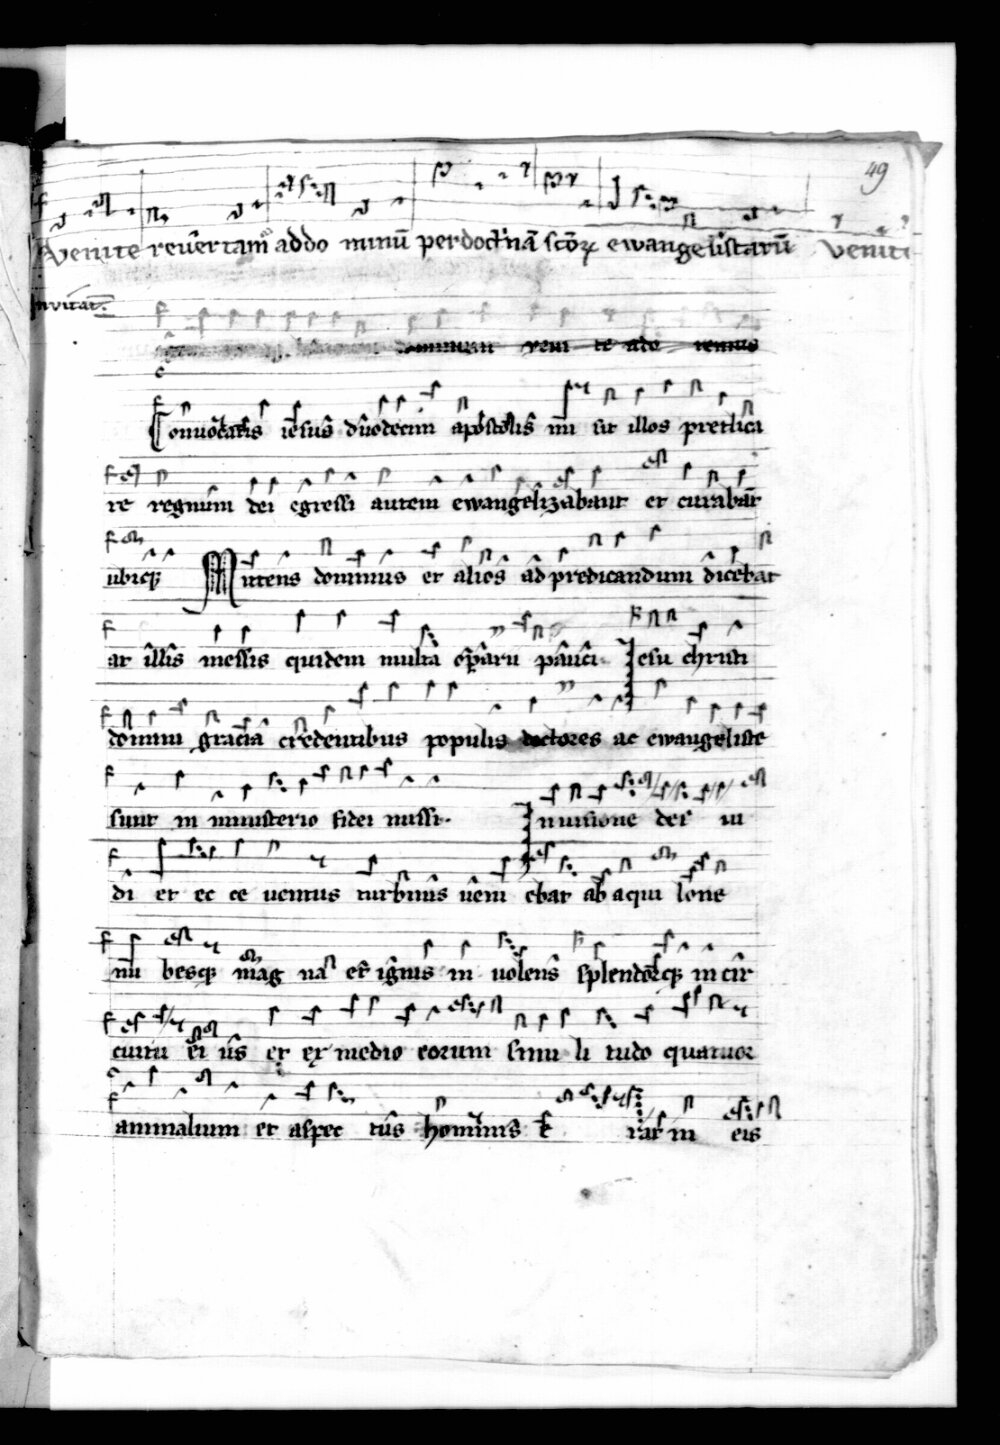 49
Venite revertam ad do minū per doctⁱnā scōꝝ ewangelistarū Venite
Invitat.
dominum veni te ado remus
Convocatis iesus duodecim apostolis mi sit illos predica
re regnum dei egressi autem ewangelizabant et curabāt
ubicꝫ Mittens dominus et alios ad predicandum dicebat
at illis messis quidem multa operarii pauci Iesu christi
domini gracia credentibus populis doctores ac ewangeliste
sunt in ministerio fidei missi. In visione dei vi
di et ec ce ventus turbinis veni ebat ab aqui lone
nu besqꝫ mag na et ignis in volens splendorqꝫ in cir
cuitu ei us et ex medio eorum simi li tudo quatuor
animalium et aspec tus hominis e rat in eis